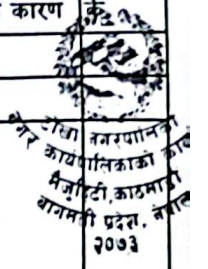 कारण
टोखा नगरपालिका
नगर कार्यपालिकाको
काठमाडौं
बागमती प्रदेश, नेपाल
२०७३